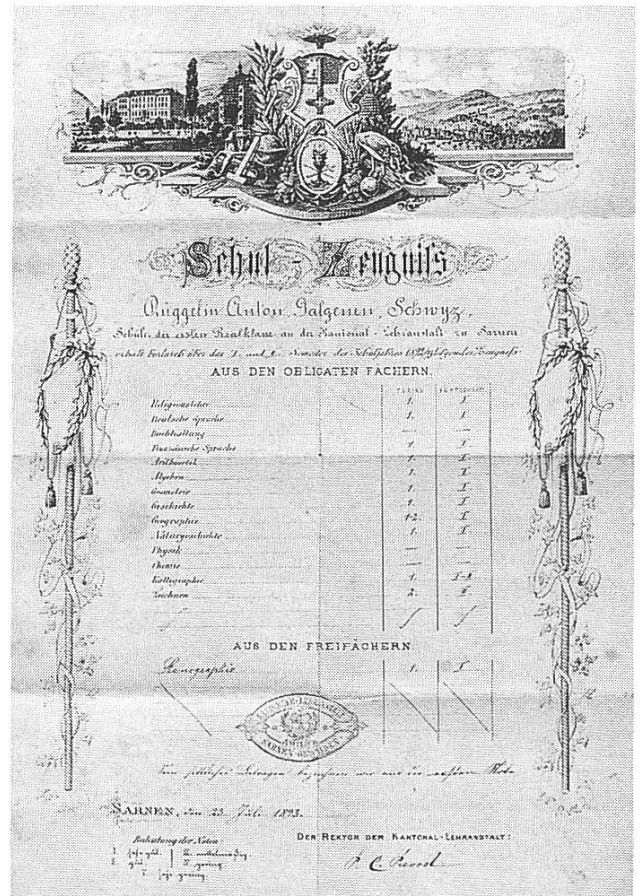 Schul-Zeugniss
Ruggelin Anton, Galgenen, Schwyz,
Schüler der ersten Realklasse an der Kantonal-Lehranstalt zu Sarnen
erhält hierdurch über das I. und II. Semester des Schuljahres 1892/93 folgendes Zeugniss:
AUS DEN OBLIGATEN FÄCHERN.
FLEISS FORTSCHRITT
Religionslehre 1. I.
Deutsche Sprache 1. I.
Buchhaltung — —
Französische Sprache 1. I
Arithmetik 1. I
Algebra 1. I
Geometrie 1. I
Geschichte 1. I
Geographie 1-2. I
Naturgeschichte 1. I
Physik — —
Chemie — —
Kalligraphie 1. I-II
Zeichnen 2. II
AUS DEN FREIFÄCHERN.
Stenographie 1. I
Sein sittliches Betragen bezeichnen wir mit der ersten Note
SARNEN, den 23. Juli 1893.
Bedeutung der Noten:
DER REKTOR DER KANTONAL-LEHRANSTALT:
1. sehr gut.
2. gut.